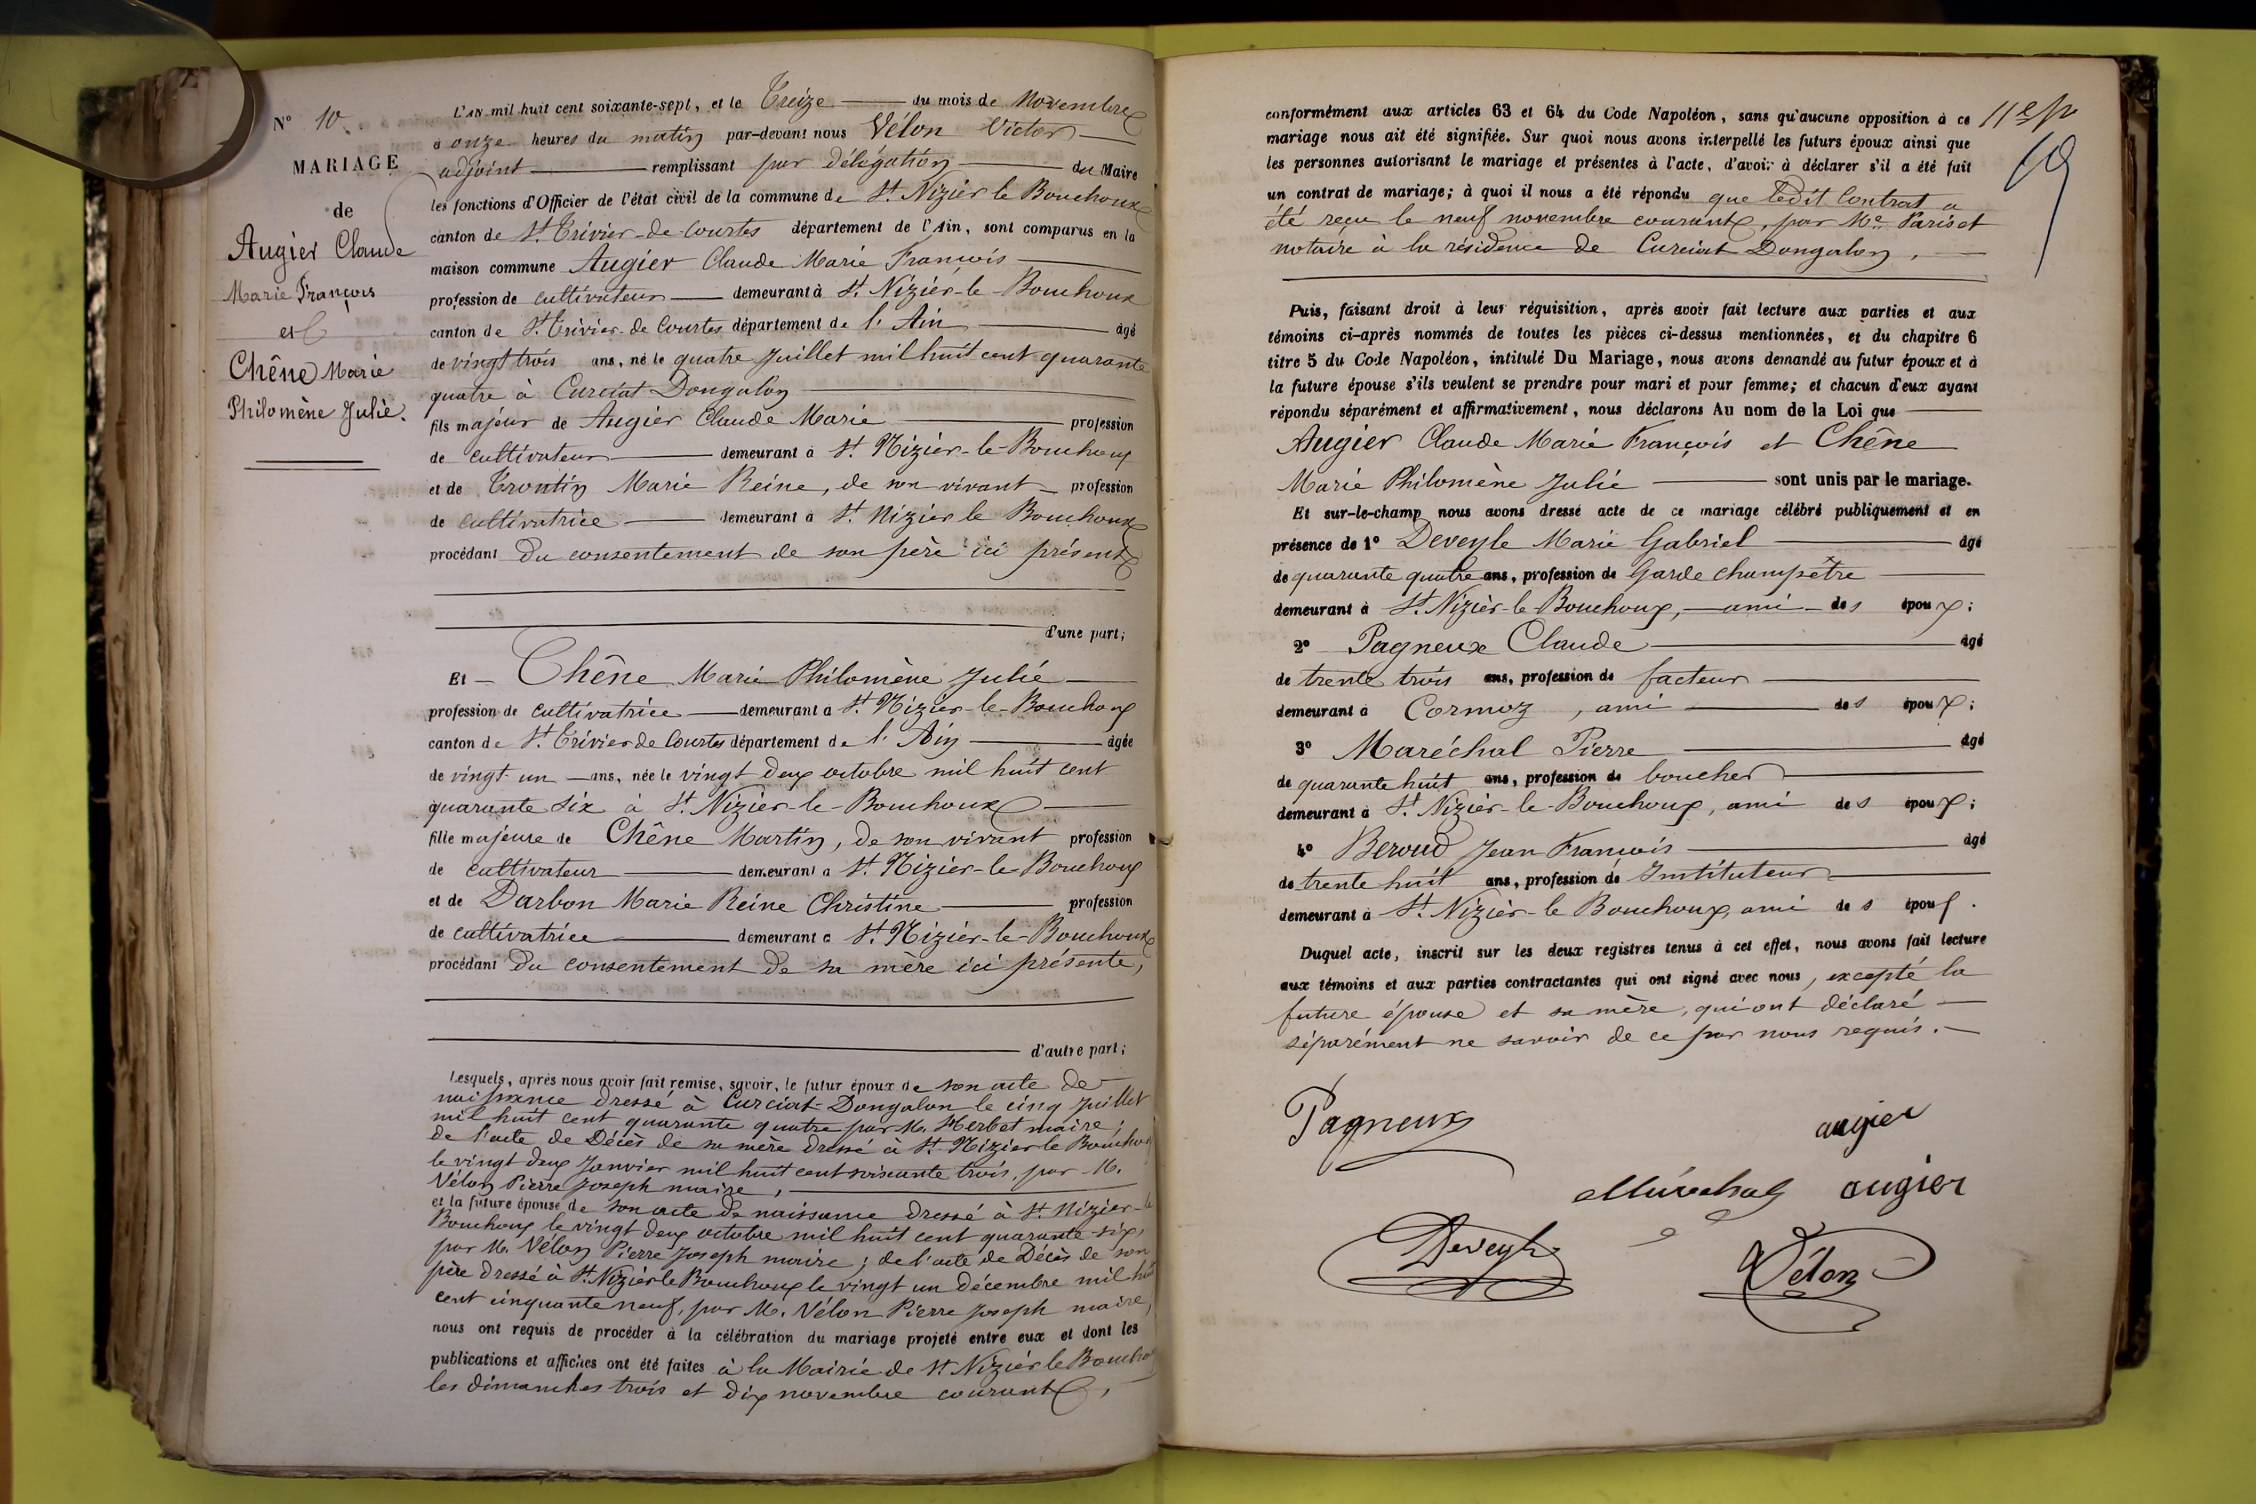 N° 10
MARIAGE
de
Augier Claude
Marie François
et
Chêne Marie
Philomène Julie.
L'AN mil huit cent soixante-sept, et le Treize du mois de Novembre
à onze heures du matin par-devant nous Vélon Victor
adjoint remplissant par délégation du Maire
les fonctions d'Officier de l'état civil de la commune de St. Nizier le Bouchoux
canton de St. Trivier-de-Courtes département de l'Ain, sont comparus en la
maison commune Augier Claude Marie François
profession de cultivateur demeurant à St. Nizier-le-Bouhoux
canton de St. Trivier-de Courtes département de l'Ain âgé
de vingt trois ans, né le quatre Juillet mil huit cent quarante
quatre à Curciat Dongalon
fils majeur de Augier Claude Marie profession
de cultivateur demeurant à St. Nizier-le-Bouchoux
et de Trontin Marie Reine, de son vivant profession
de cultivatrice demeurant à St. Nizier le Bouchoux
procédant du consentement de son père ici présent
d'une part;
Et Chêne Marie Philomène Julie
profession de cultivatrice demeurant à St. Nizier-le-Bouchoux
canton de St. Trivier de Courtes département de l'Ain âgée
de vingt-un ans, née le vingt deux octobre mil huit cent
quarante six à St. Nizier-le-Bouchoux
fille majeure de Chêne Martin, de son vivant profession
de cultivateur demeurant à St. Nizier-le-Bouchoux
et de Darbon Marie Reine Christine profession
de cultivatrice demeurant à St. Nizier-le-Bouchoux
procédant du consentement de sa mère ici présente,
d'autre part;
Lesquels, après nous avoir fait remise, savoir, le futur époux de son acte de
naissance dressé à Curciat-Dongalon le cinq Juillet
mil huit cent quarante quatre par M. Herbet maire;
de l'acte de Décès de sa mère dressé à St. Nizier le Bouchoux
le vingt deux Janvier mil huit cent soixante trois, par M.
Vélon Pierre Joseph maire,
et la future épouse de son acte de naissance dressé à St. Nizier-le
Bouchoux le vingt deux octobre mil huit cent quarante-six,
par M. Vélon Pierre Joseph maire; de l'acte de Décès de son
père dressé à St. Nizier le Bouchoux le vingt un décembre mil huit
cent cinquante neuf, par M. Vélon Pierre Joseph maire,
nous ont requis de procéder à la célébration du mariage projeté entre eux et dont les
publications et affiches ont été faites à la Mairie de St. Nizier le Bouchoux
les dimanches trois et dix novembre courant,
conformément aux articles 63 et 64 du Code Napoléon, sans qu'aucune opposition à ce
mariage nous ait été signifiée. Sur quoi nous avons interpellé les futurs époux ainsi que
les personnes autorisant le mariage et présentes à l'acte, d'avoir à déclarer s'il a été fait
un contrat de mariage; à quoi il nous a été répondu que ledit Contrat a
été reçu le neuf novembre courant, par Me Pariset
notaire à la résidence de Curciat Dongalon,
Puis, faisant droit à leur réquisition, après avoir fait lecture aux parties et aux
témoins ci-après nommés de toutes les pièces ci-dessus mentionnées, et du chapitre 6
titre 5 du Code Napoléon, intitulé Du Mariage, nous avons demandé au futur époux et à
la future épouse s'ils veulent se prendre pour mari et pour femme; et chacun d'eux ayant
répondu séparément et affirmativement, nous déclarons Au nom de la Loi que
Augier Claude Marie François et Chêne
Marie Philomène Julie sont unis par le mariage.
Et sur-le-champ nous avons dressé acte de ce mariage célébré publiquement et en
présence de 1° Deveyle Marie Gabriel âgé
de quarante quatre ans, profession de Garde champêtre
demeurant à St. Nizier-le-Bouchoux, ami des époux;
2° Pagneux Claude âgé
de trente trois ans, profession de facteur
demeurant à Cormoz, ami des époux;
3° Maréchal Pierre âgé
de quarante huit ans, profession de boucher
demeurant à St. Nizier-le-Bouchoux, ami des époux;
4° Beroud Jean François âgé
de trente huit ans, profession de Instituteur
demeurant à St. Nizier-le Bouchoux, ami des époux.
Duquel acte, inscrit sur les deux registres tenus à cet effet, nous avons fait lecture
aux témoins et aux parties contractantes qui ont signé avec nous, excepté la
future épouse et sa mère, qui ont déclaré
séparément ne savoir de ce par nous requis.
Pagneux
augier
Maréchal augier
Deveyle
Vélon